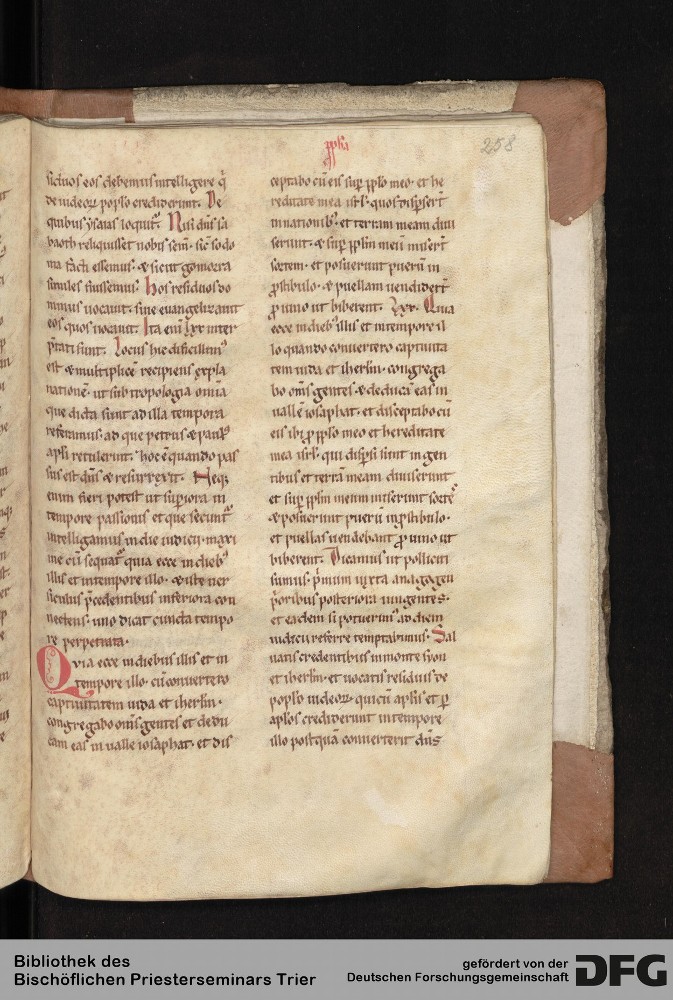 258
siduos eos debemus intelligere q̇
de iudeoꝝ poplo crediderunt. De
quibus ysaias loquit᷒. Nisi dn̄s sa
baoth reliquisset nobis sem̄. sic̄ sodo
ma facti essemus. & sicut gomorra
similes fuissemus. hos residuos do
minus uocauit. siue euangelizauit
eos quos uocauit. Ita eni lxx inter
p̄tati sunt. Locus hic difficillim᷒
est & multiplicē recipiens expla
nationē. ut sub tropologia omia
que dicta sunt ad illa tempora
referamus. ad que petrus & paul᷒
apl̄i retulerunt. hoc ē quando pas
sus est dn̄s & resurrexit. Neq;
enim fieri potest ut superiora in
tempore passionis et que secunt᷒
intelligamus in die iudicii. maxi
me cū sequat᷒ quia ecce in dieb᷒
illis et in tempore illo. & iste uer
siculus p̄cedentibus inferiora con
nectens. uno dicat cuncta tempo
re perpetrata.
Quia ecce in diebus illis et in
tempore illo. cū conuertero
captiuitatem iuda et iherlm̄.
congregabo om̄s gentes et dedu
cam eas in ualle iosaphat. et dis
ceptabo cū eis sup̱ pp̄lo meo. et he
reditate mea isrl̄. quos disp̱sert
in nationib᷒. et terram meam diui
serunt. & sup̱ pp̄lm meū misert̄
sortem. et posuerunt puerū in
ꝓstibulo. & puellam uendidert̄
ꝓ uino ut biberent. lxx. Quia
ecce in dieb᷒ illis et in tempore il
lo quando conuertero captiuita
tem iuda et iherlm̄. congrega
bo om̄s gentes & deducā eas in
uallē iosaphat. et disceptabo cū
eis ibi ꝓ pp̄lo meo et hereditate
mea isrl̄. qui disp̱si sunt in gen
tibus et terrā meam diuiserunt
et sup̱ pp̄lm meum miserunt sortē
& posuerunt puerū in ꝓstibulo.
et puellas uendebant ꝓ uino ut
biberent. Dicamus ut polliciti
sumus. p̄mum iuxta anagogen
p̄oribus posteriora iungentes.
et eadem si potuerim᷒ ad diem
iudicii referre temptabimus. Sal
uatis credentibus in monte syon
et iherlm̄. et uocatis residuis de
poplo iudeoꝝ. qui cū apl̄is et p̱
apl̄os crediderunt in tempore
illo postquā conuerterit dn̄s
Bibliothek des
Bischöflichen Priesterseminars Trier
gefördert von der
Deutschen Forschungsgemeinschaft
DFG